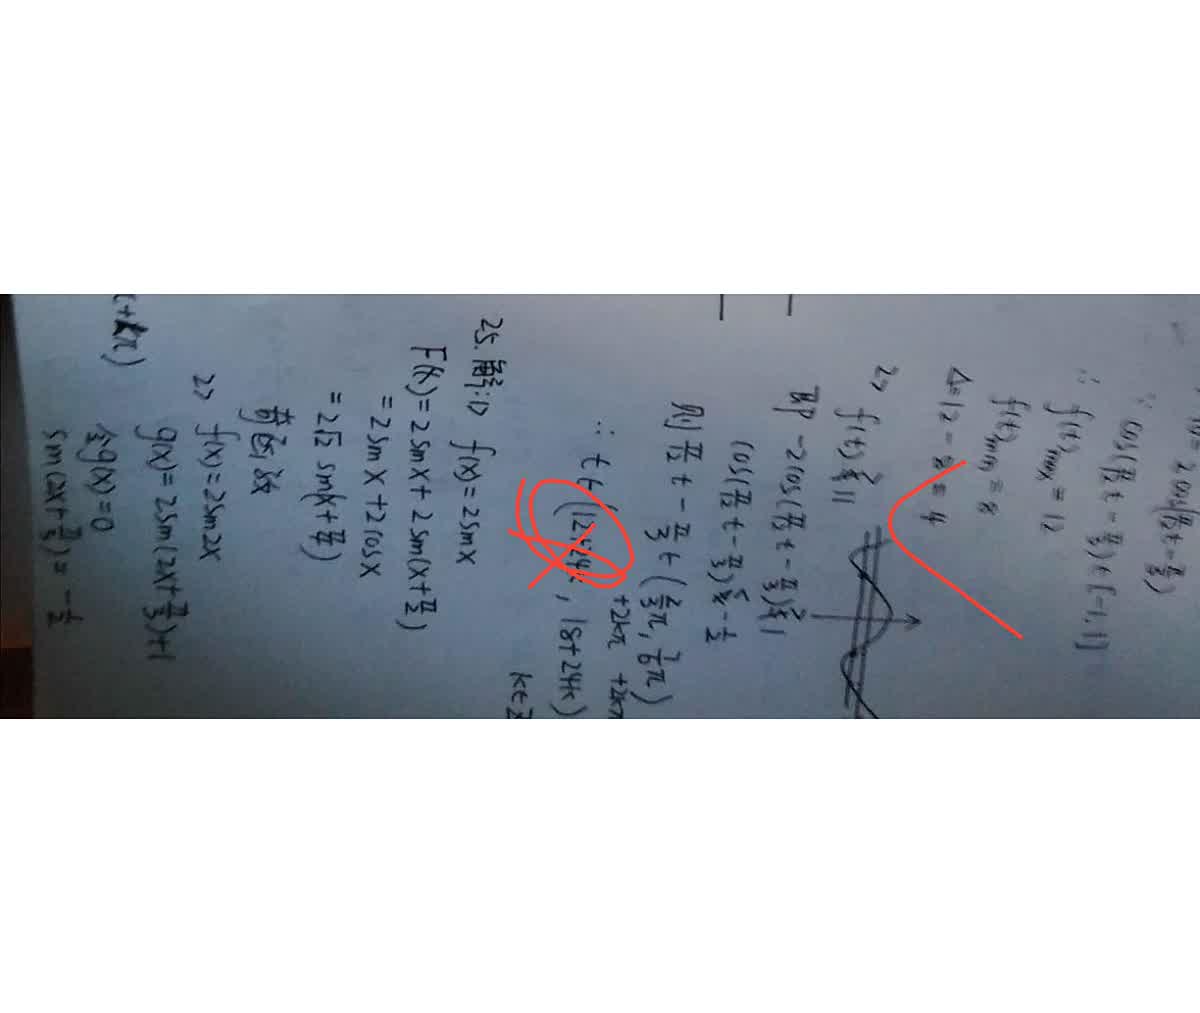 10 - 2cos(π/12 t - π/3)
∵ cos(π/12 t - π/3) ∈ [-1, 1]
∴ f(t)max = 12
f(t)min = 8
Δ = 12 - 8 = 4
2> f(t) > 11
即 -2cos(π/12 t - π/3) > 1
cos(π/12 t - π/3) < -1/2
则 π/12 t - π/3 ∈ (2/3 π, 7/6 π)
+2kπ +2kπ
∴ t ∈ (12+24k, 18+24k)
k∈Z
25. 解: 1> f(x) = 2sinx
F(x) = 2sinx + 2sin(x + π/2)
= 2sinx + 2cosx
= 2√2 sin(x + π/4)
2> f(x) = 2sin2x
g(x) = 2sin(2x + π/3) + 1
+kπ)
令g(x) = 0
sin(2x + π/3) = -1/2